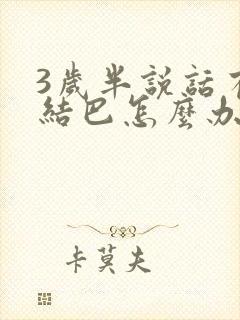 3歲半説話
結巴怎麼办
卡莫夫